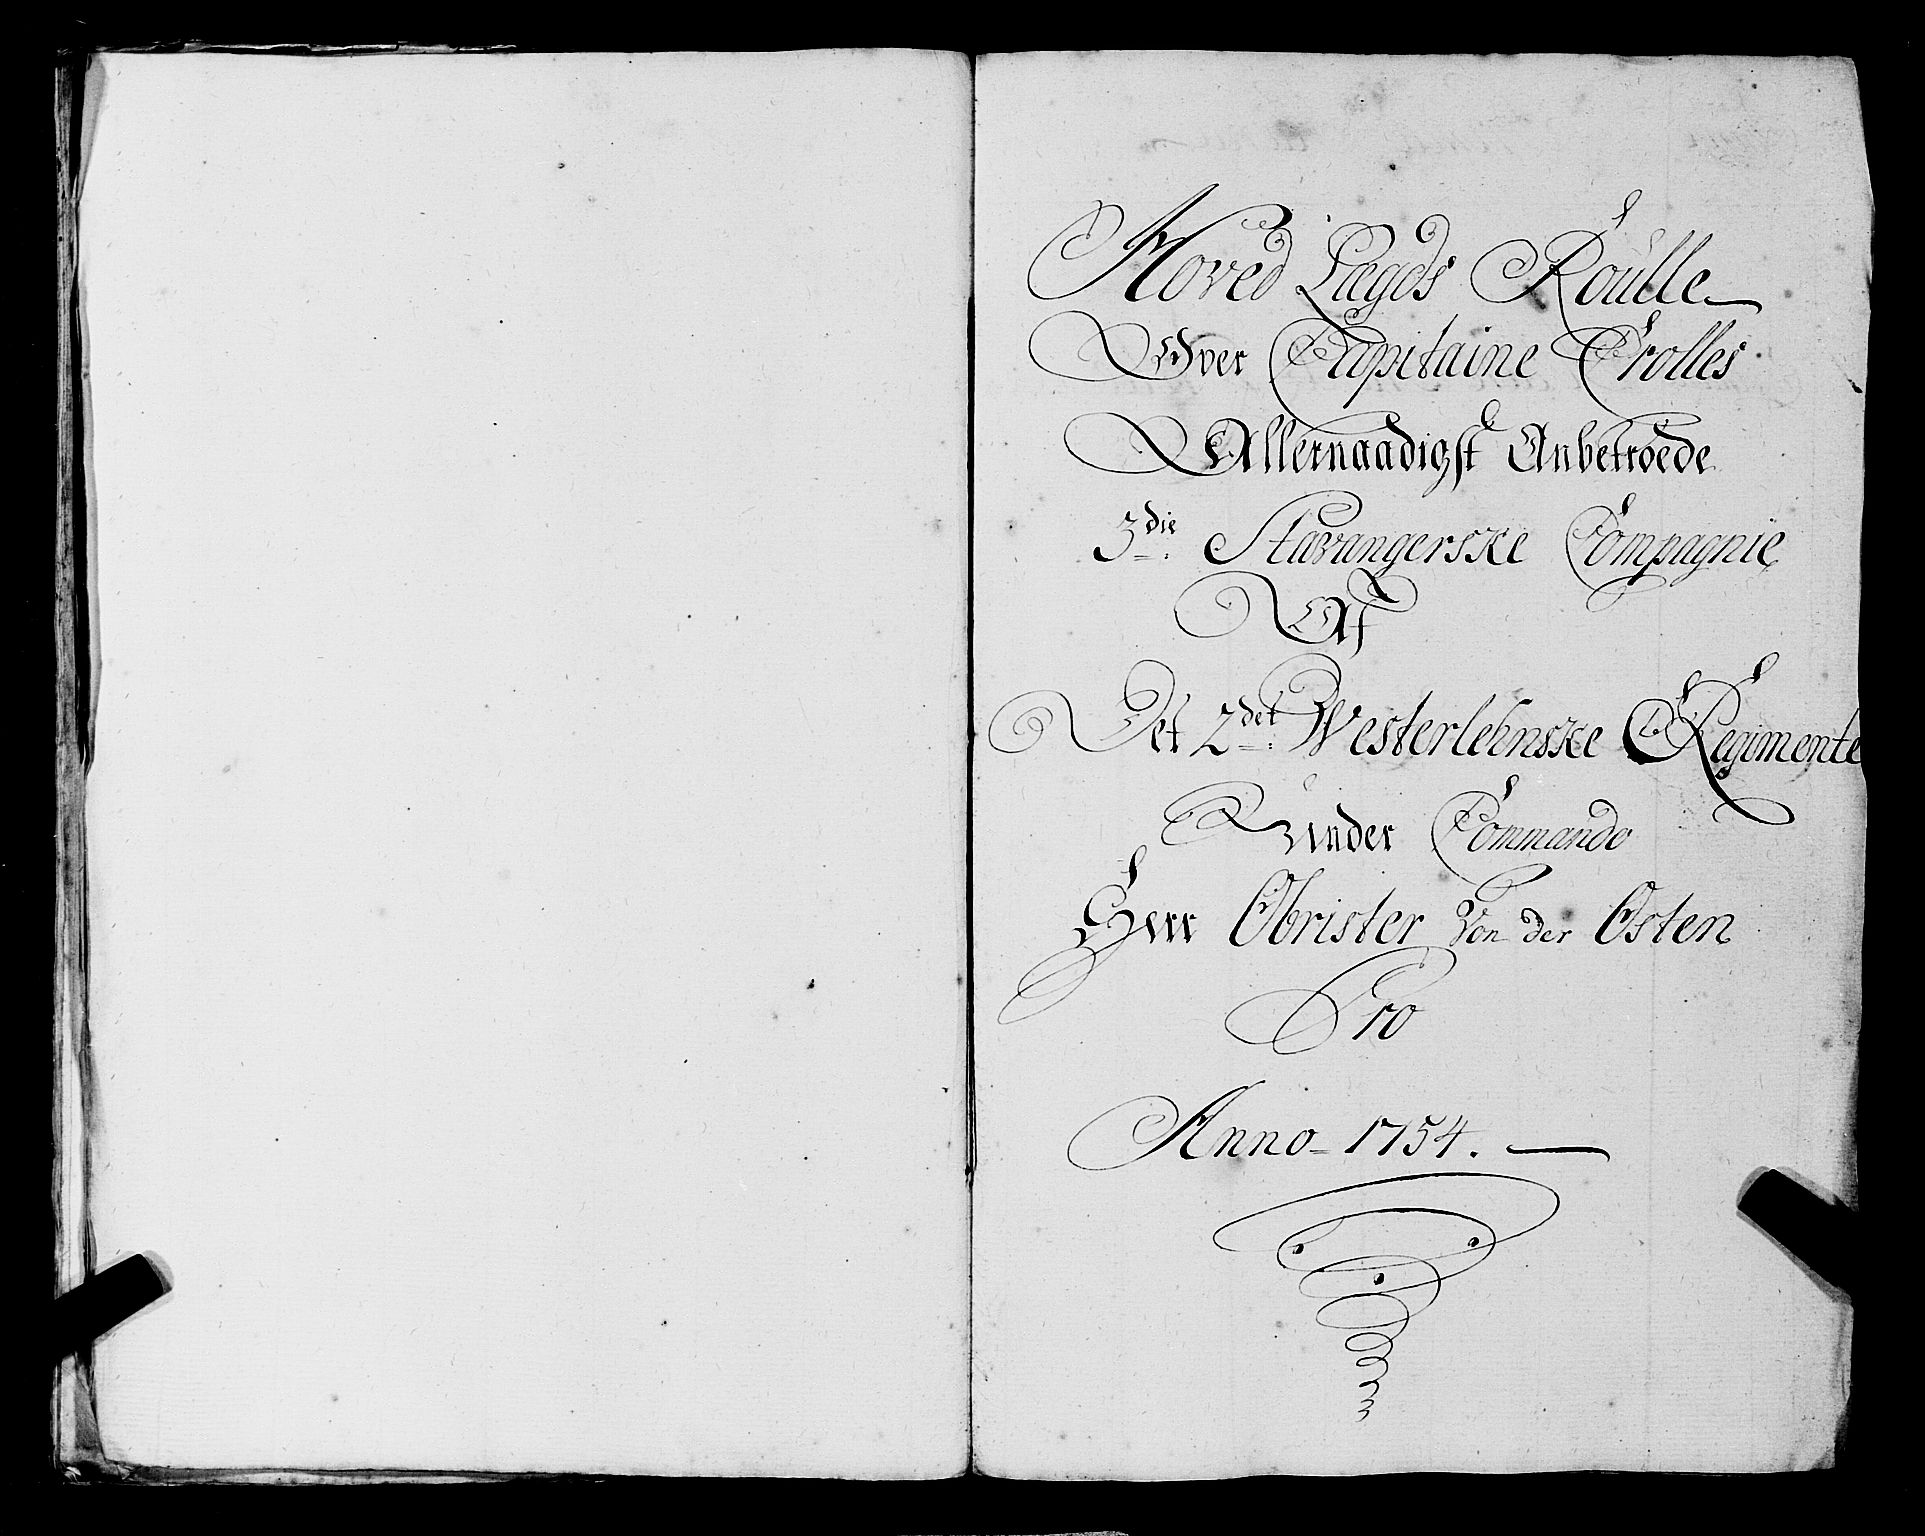 Hoved Lægds Roulle
Over Capitaine Crolles
Allernaadigst Anbetroede
3die Stavangerske Compagnie
Af
Det 2det Westerlehnske Regimente
Under Commando
Herr Obrister Von der Osten
Pro
Anno 1754.